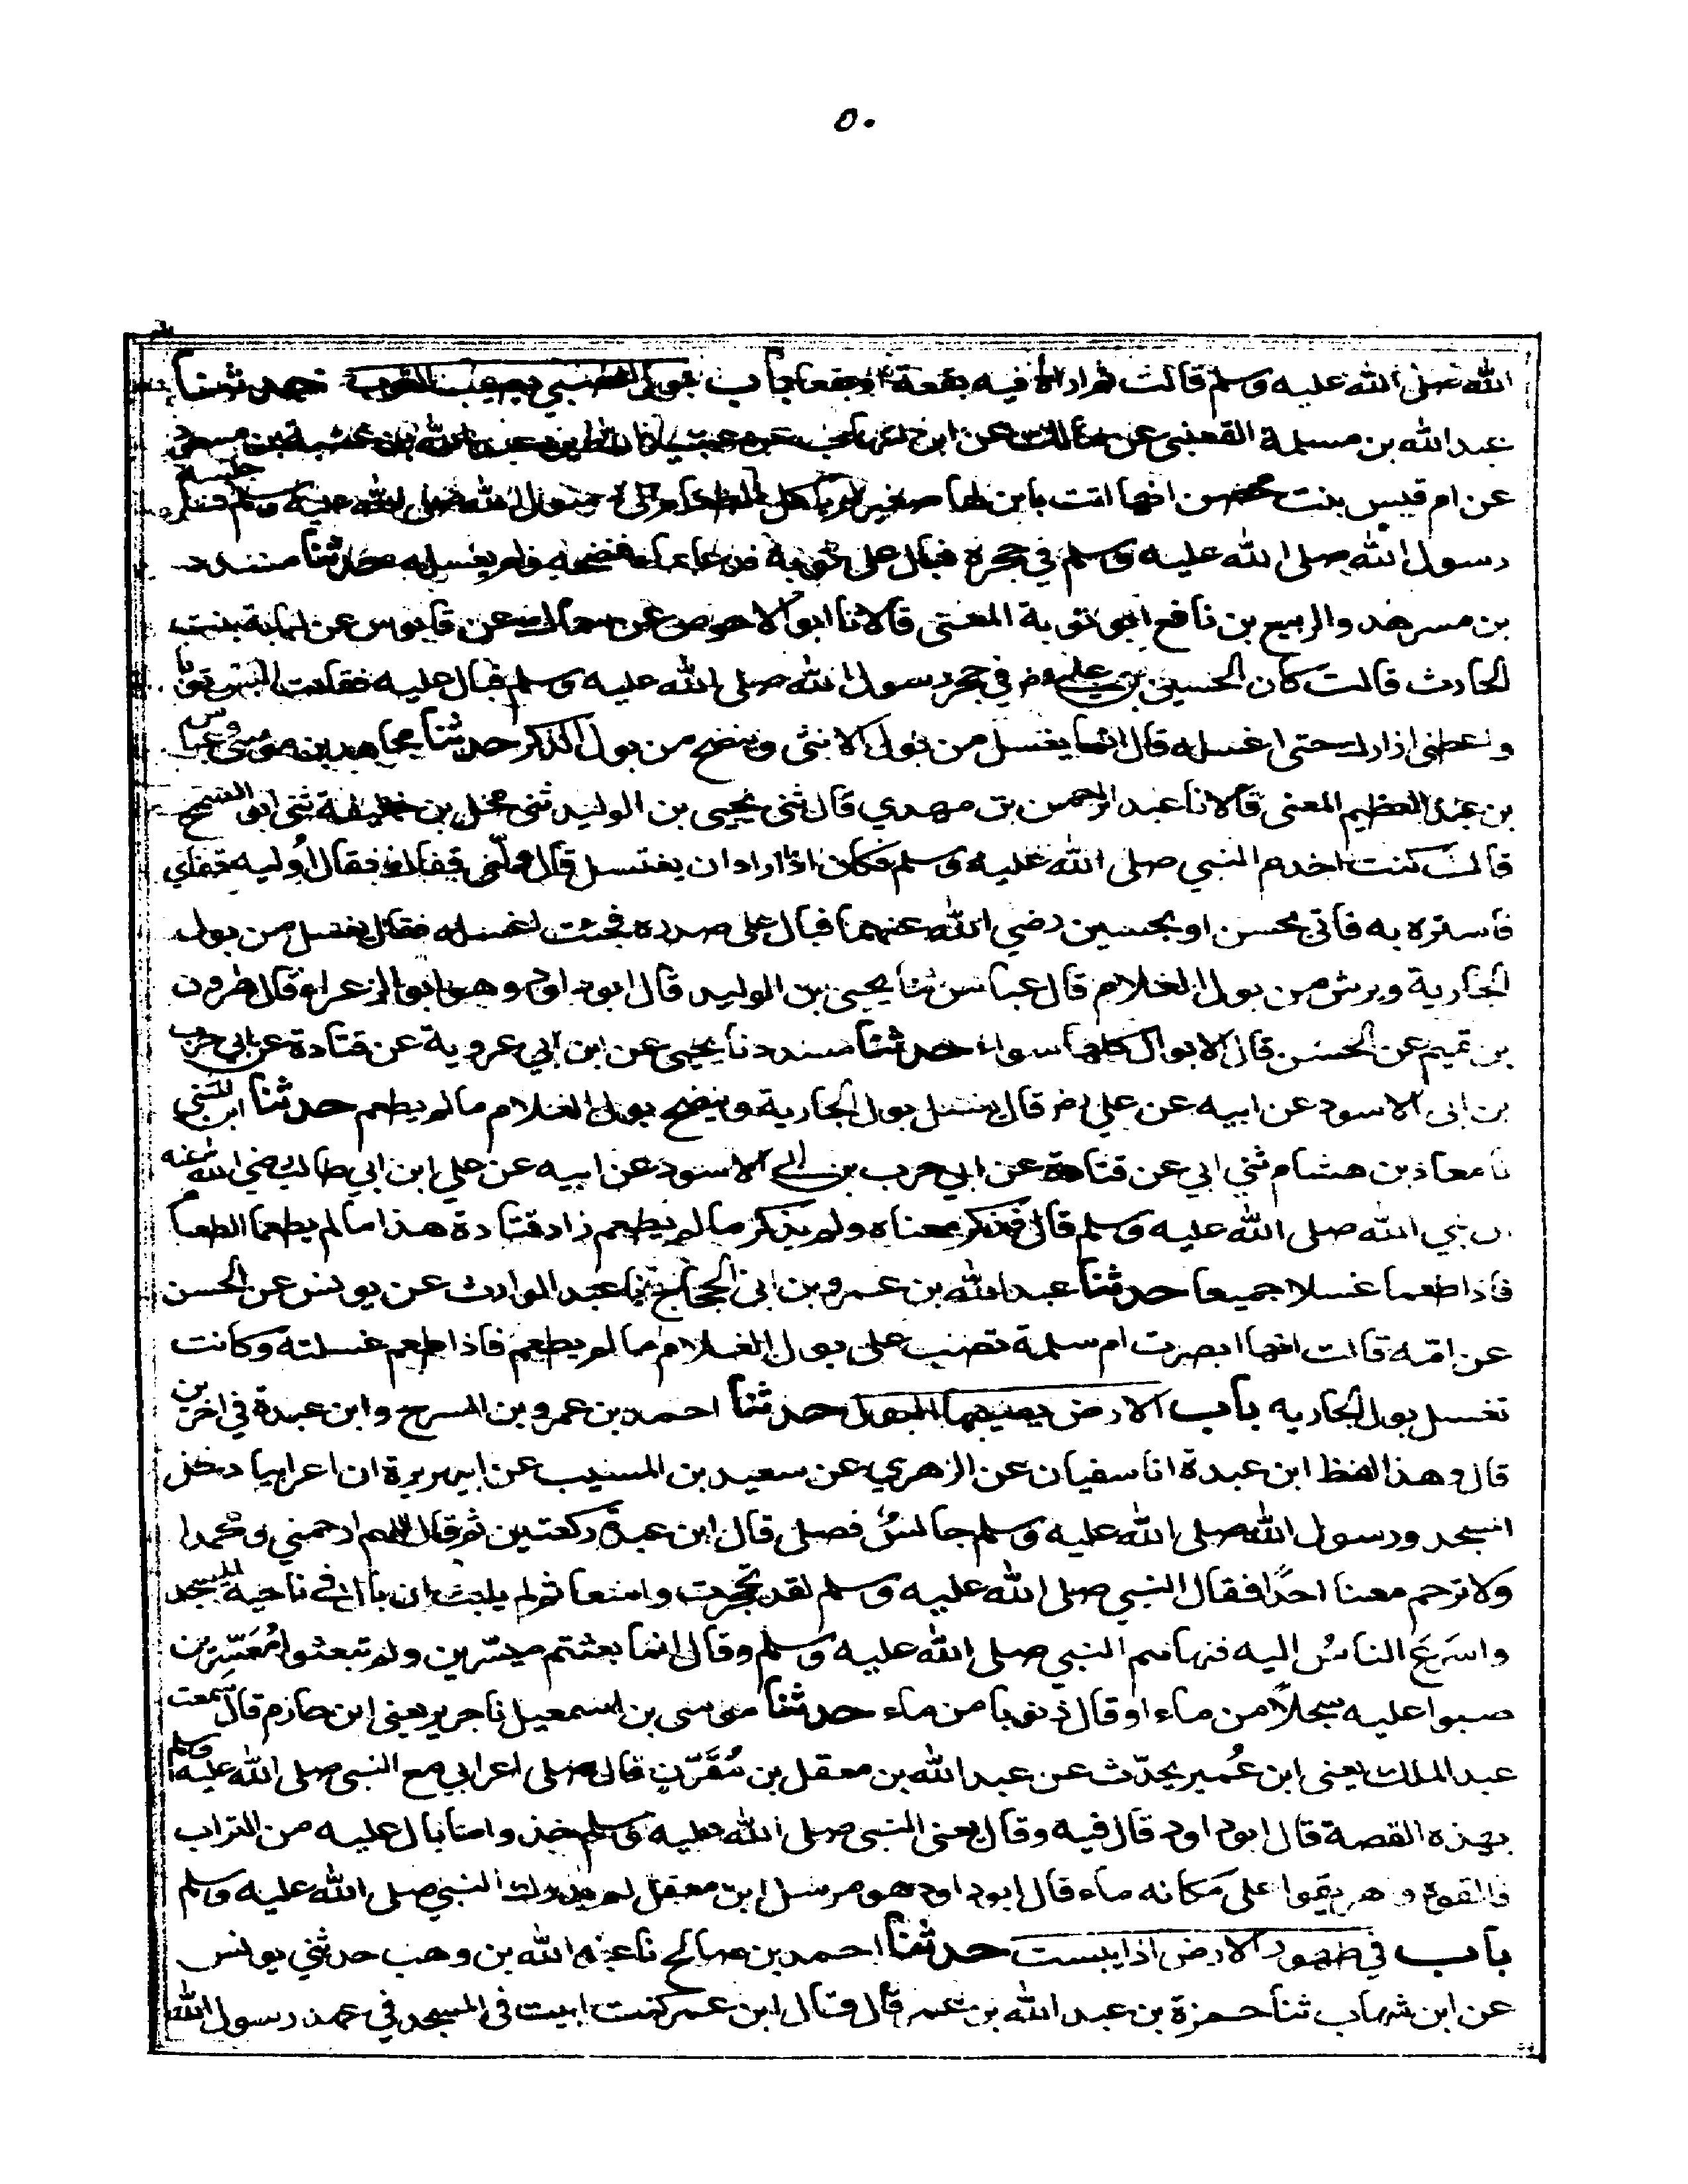 ٥٠
الله صلى الله عليه وسلم قالت ثم اراه فيه بقعة او بقعا باب بول الصبي يصيب الثوب حدثنا
عبد الله بن مسلمة القعنبي عن مالك عن ابن شهاب عن عبيد الله بن عبد الله بن عتبة بن مسعود
عن ام قيس بنت محصن انها اتت بابن لها صغير لم ياكل الطعام الى رسول الله صلى الله عليه وسلم فاجلسه
رسول الله صلى الله عليه وسلم في حجره فبال على ثوبه فدعا بماء فنضحه ولم يغسله حدثنا مسدد
بن مسرهد والربيع بن نافع ابو توبة المعنى قالا نا ابو الاحوص عن سماك عن قابوس عن لبابة بنت
الحارث قالت كان الحسين بن علي رض في حجر رسول الله صلى الله عليه وسلم فبال عليه فقلت البس ثوبا
واعطني ازارك حتى اغسله قال انما يغسل من بول الانثى وينضح من بول الذكر حدثنا مجاهد بن موسى وعباس
بن عبد العظيم المعنى قالا نا عبد الرحمن بن مهدي قال ثني يحيى بن الوليد ثني محل بن خليفة ثني ابو السمح
قال كنت اخدم النبي صلى الله عليه وسلم فكان اذا اراد ان يغتسل قال ولّني قفاك فقال اُوليه قفاي
فاستره به فاتي بحسن او بحسين رضي الله عنهما فبال على صدره فجئت اغسله فقال يغسل من بول
الجارية ويرش من بول الغلام قال عباس ثنا يحيى بن الوليد قال ابو داود وهو ابو الزعراء قال هرون
بن تميم عن الحسن قال الابوال كلها سواء حدثنا مسدد نا يحيى عن ابن ابي عروبة عن قتادة عن ابي حرب
بن ابي الاسود عن ابيه عن علي رض قال يغسل بول الجارية وينضح بول الغلام ما لم يطعم حدثنا ابن المثني
نا معاذ بن هشام ثني ابي عن قتادة عن ابي حرب بن ابي الاسود عن ابيه عن علي ابن ابي طالب رضي الله عنه
ان نبي الله صلى الله عليه وسلم قال فذكر بمعناه ولم يذكر ما لم يطعم زاد قتادة هذا ما لم يطعما الطعام
فاذا طعما غسلا جميعا حدثنا عبد الله بن عمرو بن ابي الحجاج نا عبد الوارث عن يونس عن الحسن
عن امّه قالت انها ابصرت ام سلمة تصب على بول الغلام ما لم يطعم فاذا طعم غسلته وكانت
تغسل بول الجاريه باب الارض يصيبها البول حدثنا احمد بن عمرو بن السرح وابن عبدة في اخرين
قال وهذا لفظ ابن عبدة انا سفيان عن الزهري عن سعيد بن المسيب عن ابي هريرة ان اعرابيا دخل
المسجد ورسول الله صلى الله عليه وسلم جالسٌ فصلى قال ابن عبدة ركعتين ثم قال اللهم ارحمني ومحمدا
ولا ترحم معنا احدًا فقال النبي صلى الله عليه وسلم لقد تحجرت واسعا ثم لم يلبث ان بال في ناحية المسجد
واسرَعَ الناسُ اليه فنهاهم النبي صلى الله عليه وسلم وقال انما بعثتم ميسّرين ولم تبعثوا مُعَسِّرين
صبوا عليه سجلاً من ماء او قال ذنوبا من ماء حدثنا موسى بن اسمعيل نا جرير يعني ابن حازم قال سمعت
عبد الملك يعني ابن عُمير يحدّث عن عبد الله بن معقل بن مُقَرّن قال صلى اعرابي مع النبي صلى الله عليه وسلم
بهذه القصة قال ابو داود قال فيه وقال يعني النبي صلى الله عليه وسلم خذوا ما بال عليه من التراب
فالقوه و هريقوا على مكانه ماء قال ابو داود هو مرسل ابن معقل لم يدرك النبي صلى الله عليه وسلم
باب في طهور الارض اذا يبست حدثنا احمد بن صالح نا عبد الله بن وهب حدثني يونس
عن ابن شهاب ثنا حمزة بن عبد الله بن عمر قال قال ابن عمر كنت ابيت في المسجد في عهد رسول الله